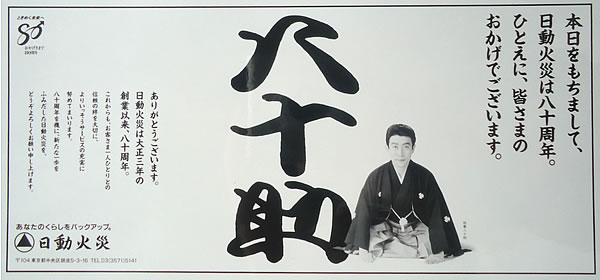 本日をもちまして、
日動火災は八十周年。
ひとえに、皆さまの
おかげでございます。
八十助
ありがとうございます。
日動火災は大正三年の
創業以来、八十周年。
これからも、お客さま一人ひとりとの
信頼の絆を大切に、
よりいっそうサービスの充実に
努めてまいります。
八十周年を機に、新たな一歩を
ふみだした日動火災を、
どうぞよろしくお願い申し上げます。
ときめく未来へ
80
おかげさまで
あなたのくらしをバックアップ。
日動火災
〒104 東京都中央区銀座5-3-16 TEL.03(3571)5141